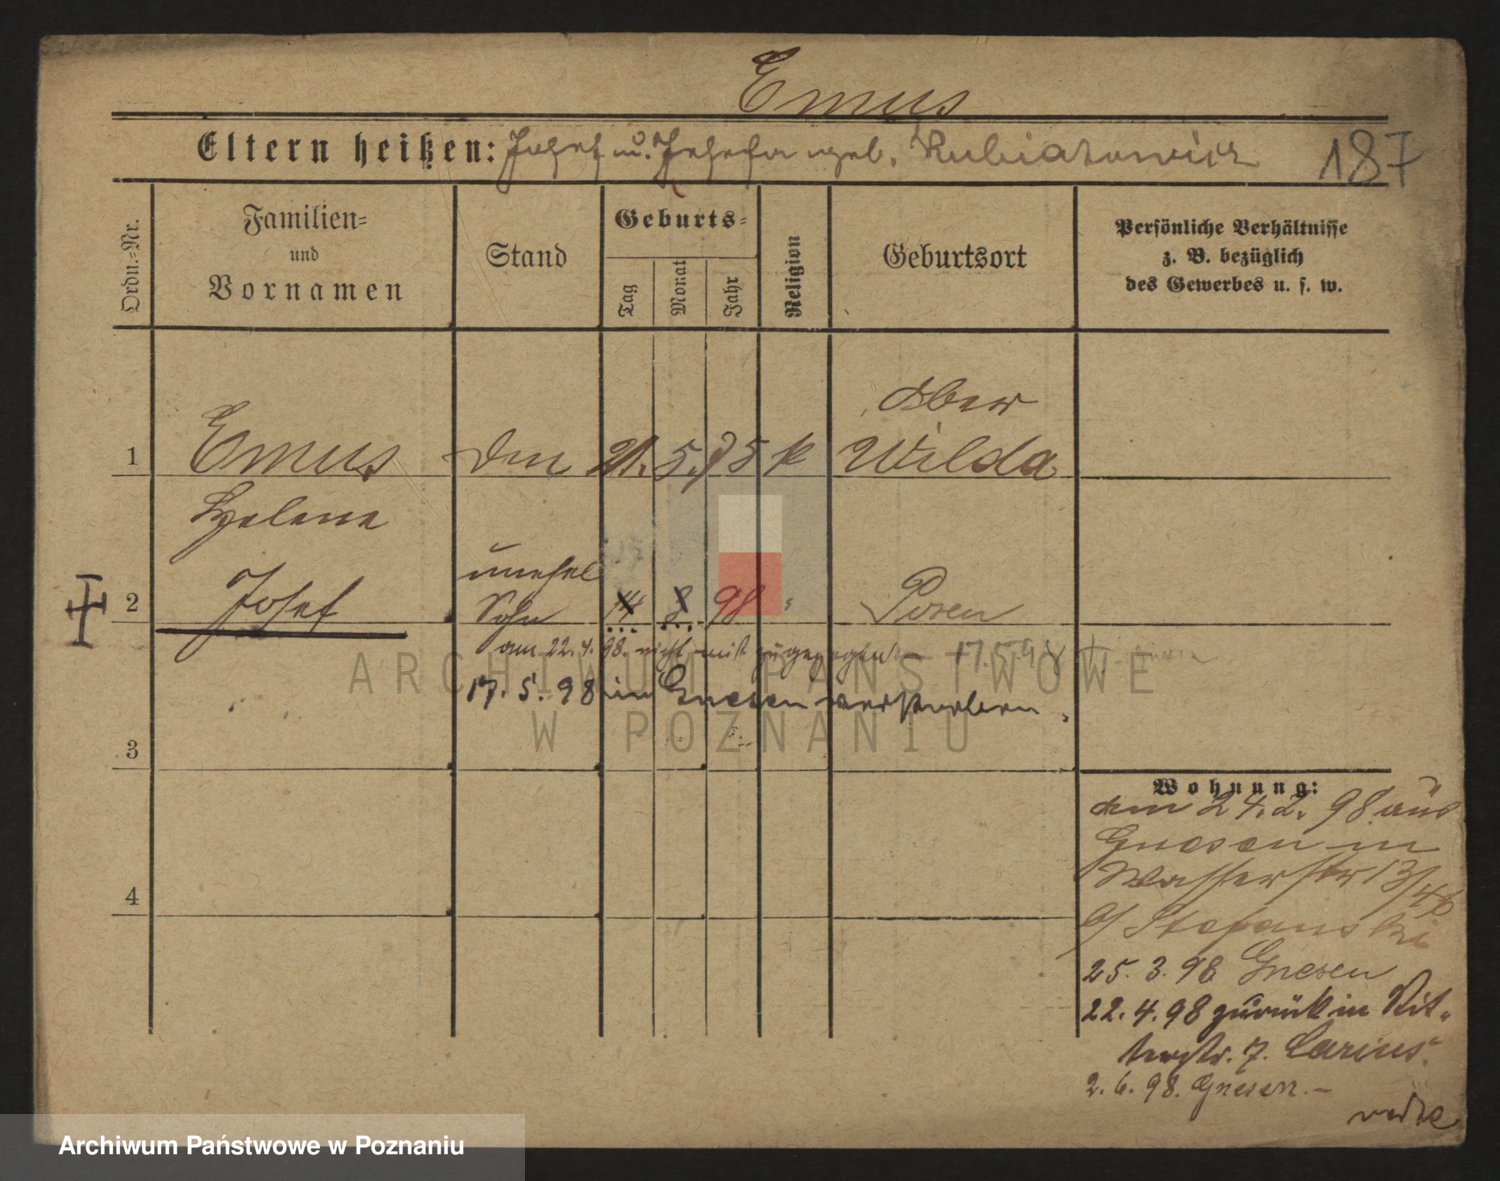 Emus
Eltern heißen: Josef u. Josefa geb. Kubiatowicz
187
Ordn.-Nr.
Familien- und Vornamen
Stand
Geburts-
Tag
Monat
Jahr
Religion
Geburtsort
Persönliche Verhältnisse
z. B. bezüglich
des Gewerbes u. s. w.
Ober
1 Emus 21. 5. 75 k Wilda
Helene
unehel
2 Josef Sohn 14 8 98 Posen
am 22. 4. 98. nicht mit zugezogen 17.5.98
17. 5. 98 in Gnesen verstorben.
3
4
Wohnung:
am 24. 2. 98 aus
Gnesen in
Wasserstr 13/
b/ Stefanski
25. 3. 98 Gnesen
22. 4. 98 zurück in Rit-
terstr. 7. Carius.
2. 6. 98. Gnesen. –
ARCHIWUM PAŃSTWOWE
W POZNANIU
Archiwum Państwowe w Poznaniu